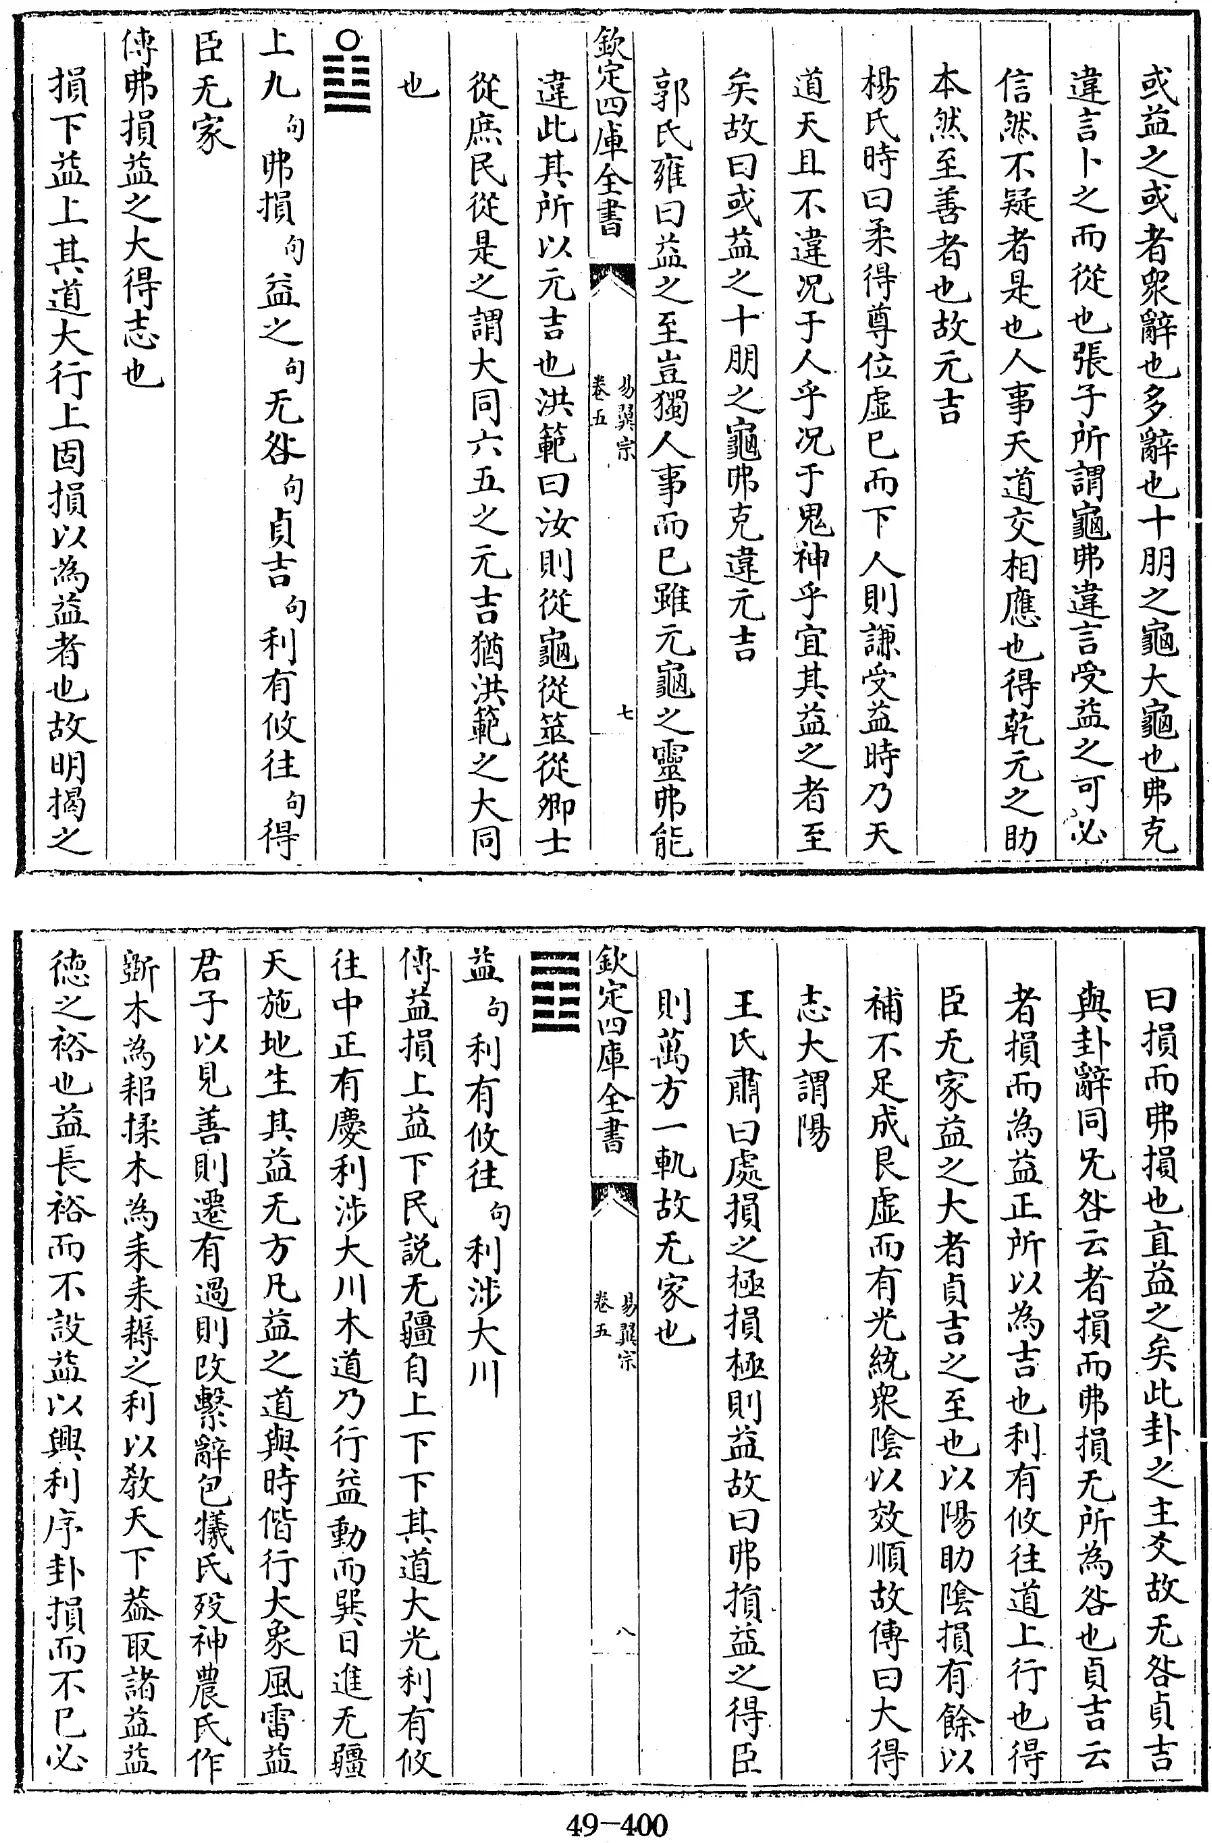 或益之或者衆辭也多辭也十朋之龜大龜也弗克
違言卜之而從也張子所謂龜弗違言受益之可必
信然不疑者是也人事天道交相應也得乾元之助
本然至善者也故元吉
楊氏時曰柔得尊位虛已而下人則謙受益時乃天
道天且不違况于人乎况于鬼神乎宜其益之者至
矣故曰或益之十朋之龜弗克違元吉
郭氏雍曰益之至豈獨人事而已雖元龜之靈弗能
欽定四庫全書
易翼宗
卷五
七
違此其所以元吉也洪範曰汝則從龜從筮從卿士
從庶民從是之謂大同六五之元吉猶洪範之大同
也
上九句弗損句益之句无咎句貞吉句利有攸往句得
臣无家
傳弗損益之大得志也
損下益上其道大行上固損以為益者也故明揭之
曰損而弗損也直益之矣此卦之主爻故无咎貞吉
與卦辭同无咎云者損而弗損无所為咎也貞吉云
者損而為益正所以為吉也利有攸往道上行也得
臣无家益之大者貞吉之至也以陽助陰損有餘以
補不足成艮虛而有光統衆陰以效順故傳曰大得
志大謂陽
王氏肅曰處損之極損極則益故曰弗損益之得臣
則萬方一軌故无家也
欽定四庫全書
易翼宗
卷五
八
益句利有攸往句利涉大川
傳益損上益下民説无疆自上下下其道大光利有攸
往中正有慶利涉大川木道乃行益動而巽日進无疆
天施地生其益无方凡益之道與時偕行大象風雷益
君子以見善則遷有過則改繫辭包犧氏歿神農氏作
斲木為耜揉木為耒耒耨之利以敎天下葢取諸益益
德之裕也益長裕而不設益以興利序卦損而不已必
49-400